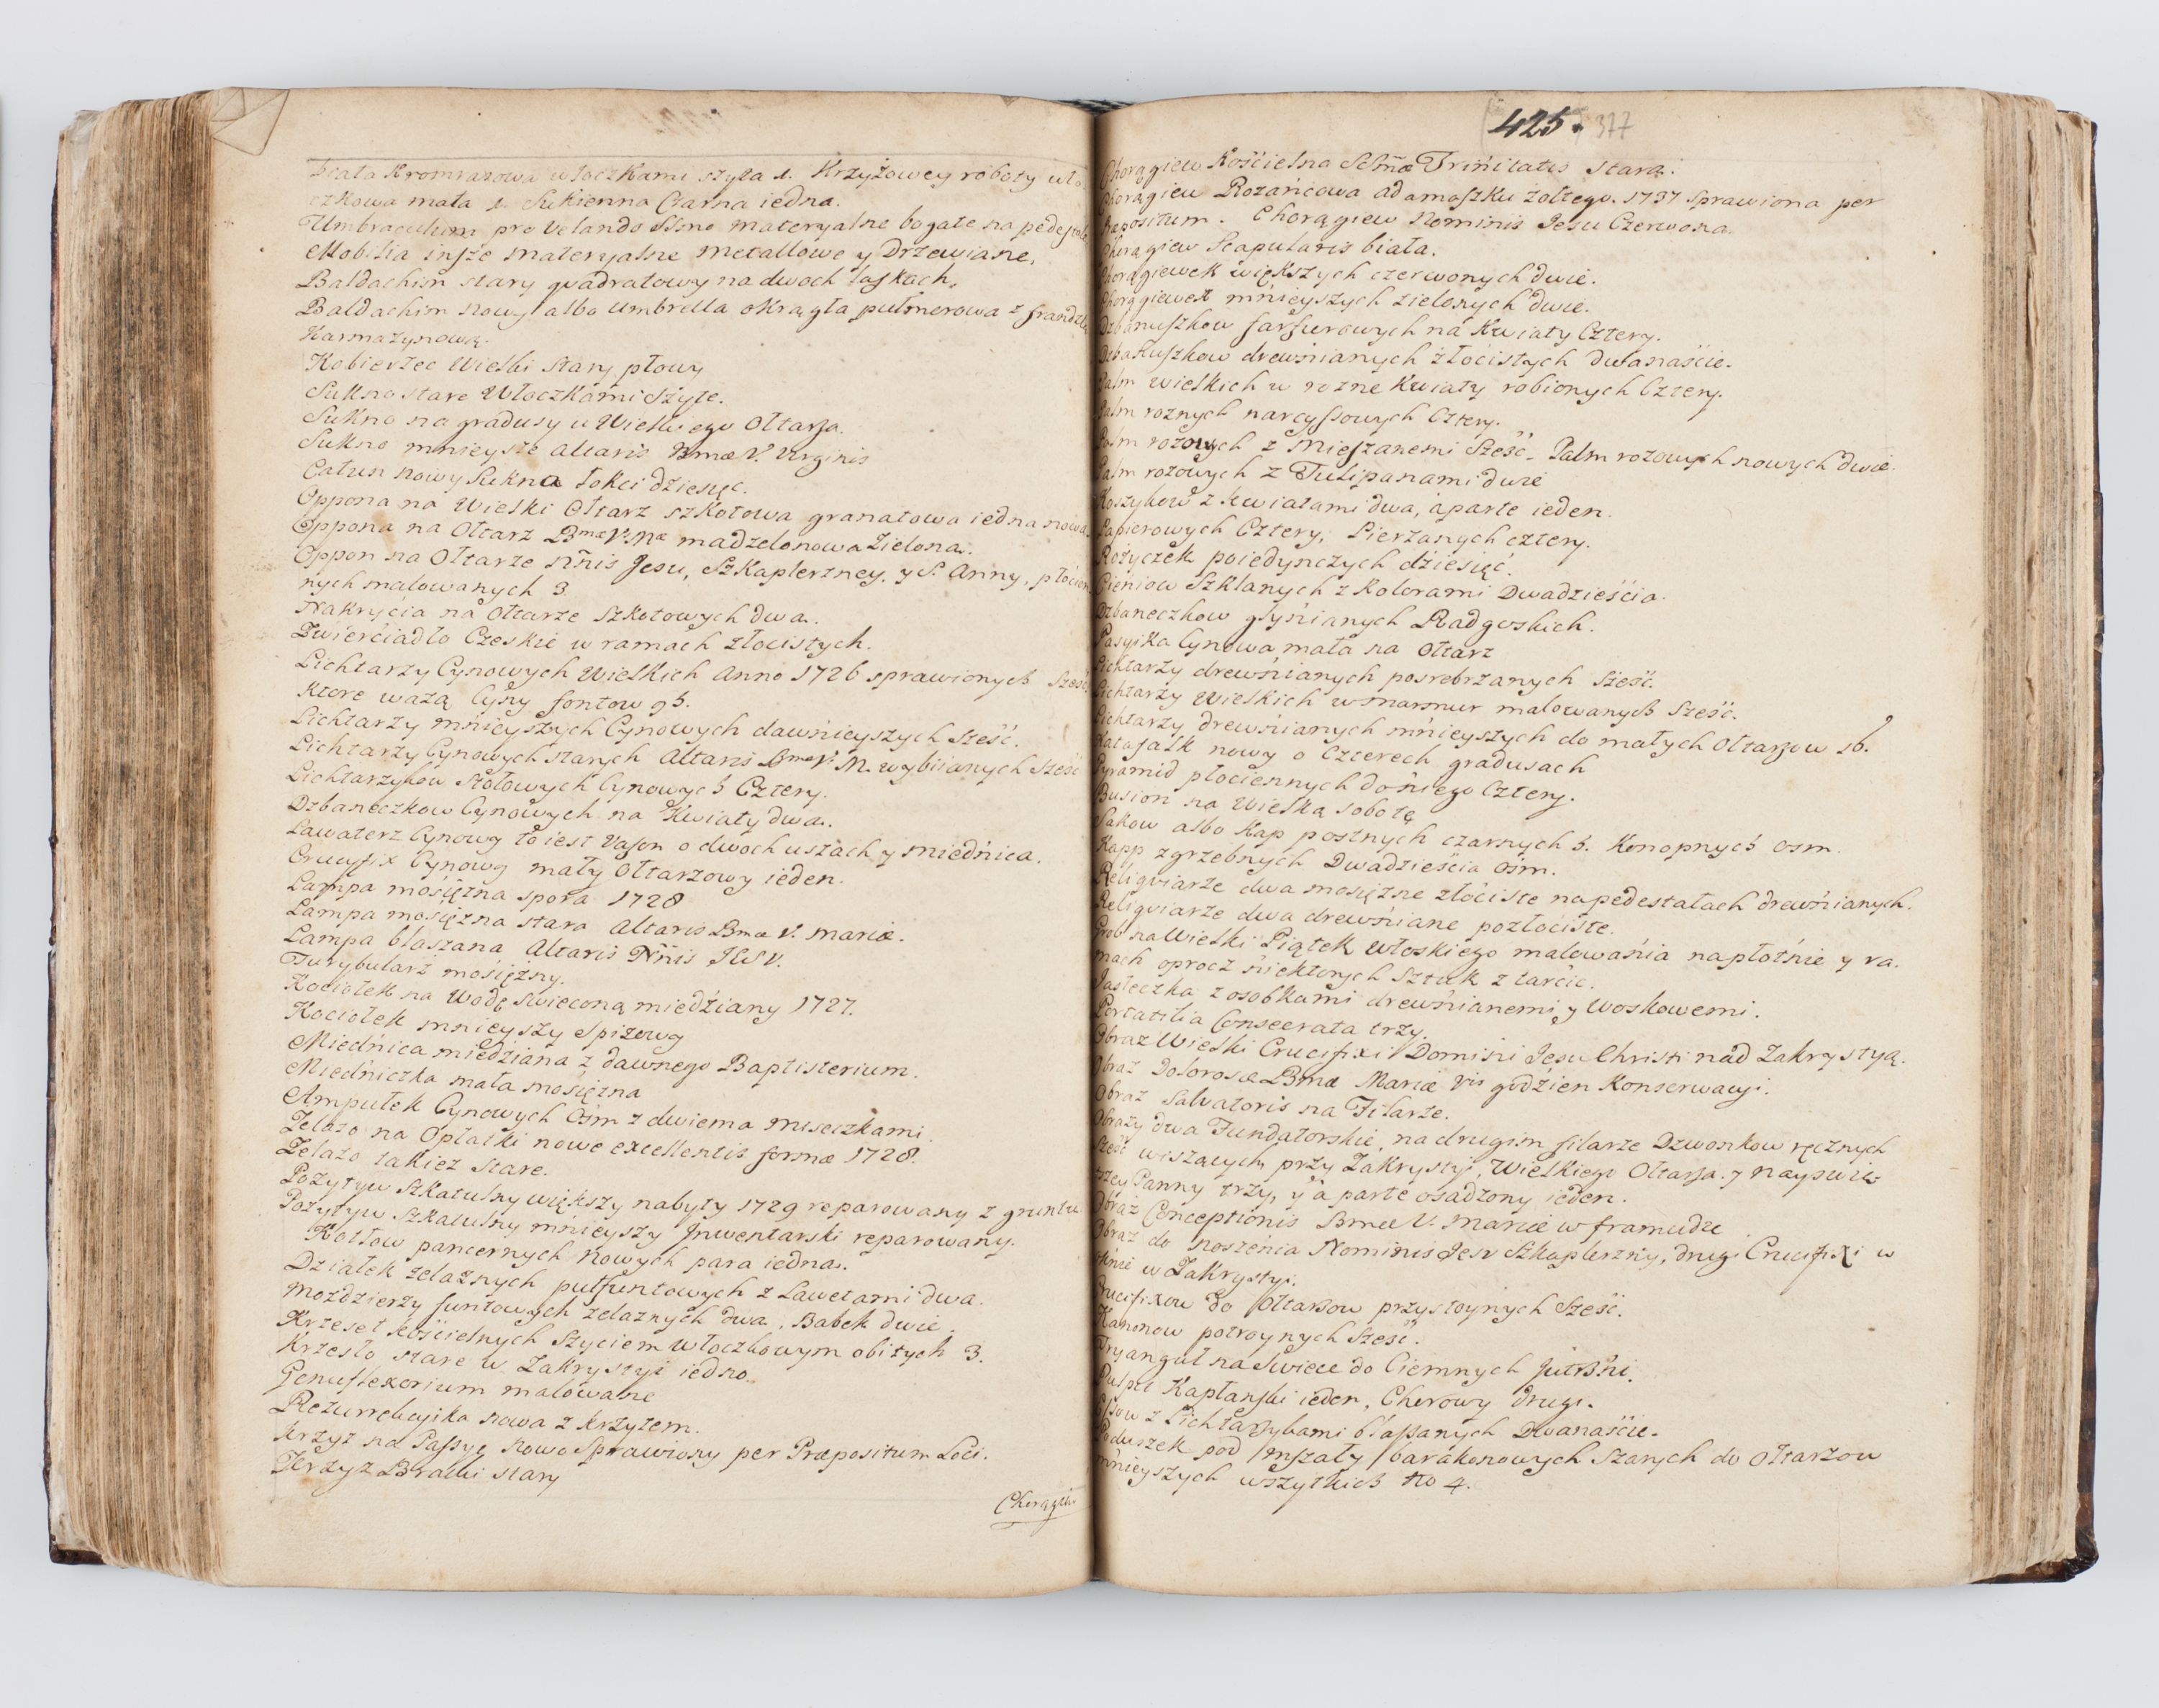 biała Kromrasowa włoczkami szyta 1. Krzyżowey roboty wło
czkowa mała 1. Sukienna Czarna iedna.
Umbraculum pro Velando SSmo materyalne bogate na pedestale
Mobilia insze Materyalne Metallowe y Drzewiane,
Baldachim stary quadratowy na dwoch laskach,
Baldachim nowy albo umbrella okrągła pułmerowa z frandzlą
Karmazynową.
Kobierzec Wielki stary płowy
Sukno stare Włoczkami szyte.
Sukno na gradusy u Wielkiego Ołtarza.
Sukno mnieysze altaris Bmæ V. Virginis
Całun nowy Sukna łokci dziesięc.
Oppona na Wielki Ołtarz szkotowa granatowa iedna nowa
Oppona na Ołtarz Bmæ V. Mæ madzelonowa Zielona.
Oppon na Ołtarze Nñis Jesu, Szkaplerzney, y S. Anny, płócien
nych malowanych 3.
Nakrycia na Ołtarze szkotowych dwa.
Zwierciadło Czeskie w ramach złocistych.
Lichtarzy Cynowych Wielkich Anno 1726 sprawionych Sześć,
Ktore ważą Cyny fontow 95.
Lichtarzy mnieyszych Cynowych dawnieyszych sześć.
Lichtarzy Cynowych starych Altaris Bmæ V. M. wybiianych sześć
Lichtarzykow stołowych Cynowych Cztery.
Dzbaneczkow Cynowych na Kwiaty dwa.
Lawaterz Cynowy to iest Vason o dwoch uszach y miednica.
Crucyfix Cynowy mały Ołtarzowy ieden.
Lampa mosiężna spora 1728
Lampa mosiężna stara Altaris Bmæ V. Mariæ.
Lampa blaszana Altaris Nñis JESV.
Turybularz mosiężny.
Kociołek na Wodę święconą miedziany 1727.
Kociołek mnieyszy Spiżowy
Miednica miedziana z dawnego Baptisterium.
Miedniczka mała mosiężna
Ampułek Cynowych Ośm z dwiema miseczkami.
Zelazo na Opłatki nowe excellentis formæ 1728.
Zelazo takież stare.
Pozytyw Szkatulny większy nabyty 1729 reparowany z gruntu
Pozytyw szkatulny mnieyszy Jnwentarski reparowany.
Kotłow pancernych nowych para iedna.
Działek żelaznych pułfuntowych z Lawetami dwa.
Mozdzierzy funtowych żelaznych dwa. Babek dwie.
Krzeseł kościelnych szyciem włoczkowym obitych 3.
Krzesło stare w Zakrystyi iedno.
Genuflexorium malowane
Rezurrekcyika nowa z krzyżem.
Krzyż na Passyę nowo Sprawiony per Præpositum Loci.
Krzyż Bracki stary
Chorągiew
425. 377
Chorągiew Kościelna SSmæ Trinitatis stara.
Chorągiew Rożańcowa adamaszku żołtego. 1737 Sprawiona per
Præpositum. Chorągiew Nominis Jesu Czerwona.
Chorągiew Scapularis biała.
Chorągiewek większych czerwonych dwie.
Chorągiewek mnieyszych zielonych dwie.
Dzbanuszkow farfurowych na Kwiaty Cztery.
Dzbanuszkow drewnianych złocistych dwanaście.
Palm wielkich w rozne Kwiaty robionych Cztery.
Palm roznych narcyssowych Cztery.
Palm rozowych z Mieszanemi Sześć. Palm rozowych nowych dwie.
Palm rozowych z Tulipanami dwie
Koszykow z kwiatami dwa, aparte ieden.
Papierowych Cztery, Pierzanych cztery.
Rożyczek poiedynczych dziesięć.
Pieniow Szklanych z kolorami Dwadzieścia.
Dzbaneczkow glynianych Radgoskich.
Passyika Cynowa mała na Ołtarz
Lichtarzy drewnianych posrebrzanych sześć.
Lichtarzy Wielkich w marmur malowanych Sześć.
Lichtarzy drewnianych mnieyszych do małych Ołtarzow 16.
Katafalk nowy o Czterech gradusach
Pyramid płociennych do niego Cztery.
Busion na Wielką sobotę
Sakow albo Kap postnych czarnych 5. Konopnych osm.
Kapp zgrzebnych Dwadzieścia ośm.
Religviarze dwa mosiężne złociste na pedestałach drewnianych.
Religviarze dwa drewniane pozłociste.
Grob na Wielki Piątek Włoskiego malowania na płotnie y ra.
mach oprocz niektorych sztuk z tarcic.
Jasleczka z osobkami drewnianemi y Woskowemi.
Portatilia Consecrata trzy.
Obraz Wielki Crucifixi Domini Jesu Christi nad Zakrystyą.
Obraz Dolorosæ Bmæ Mariæ Vis godzien Konserwacyi.
Obraz Salvatoris na Filarze.
Obrazy dwa Fundatorskie, na drugim filarze Dzwonkow ręcznych
sześć wiszących, przy Zakrystyi, Wielkiego Ołtarza. y Nayświę
tszey Panny trzy, y a parte osadzony ieden.
Obraz Conceptionis Bmæ V. Mariæ w framudze
Obraz do noszenia Nominis Jesu Szkaplerzny, drugi Crucifixi w
oknie w Zakrystyi.
Crucifixow do Ołtarzow przystoynych Sześć.
Kanonow potroynych sześć.
Tryanguł na Swiece do Ciemnych Jutrzni.
Pulpit Kapłański ieden, Chorowy drugi.
z Lichtarzykami blaszanych Dwanaście.
Poduszek pod mszały barakanowych Szarych do Ołtarzow
mnieyszych wszytkich No 4.